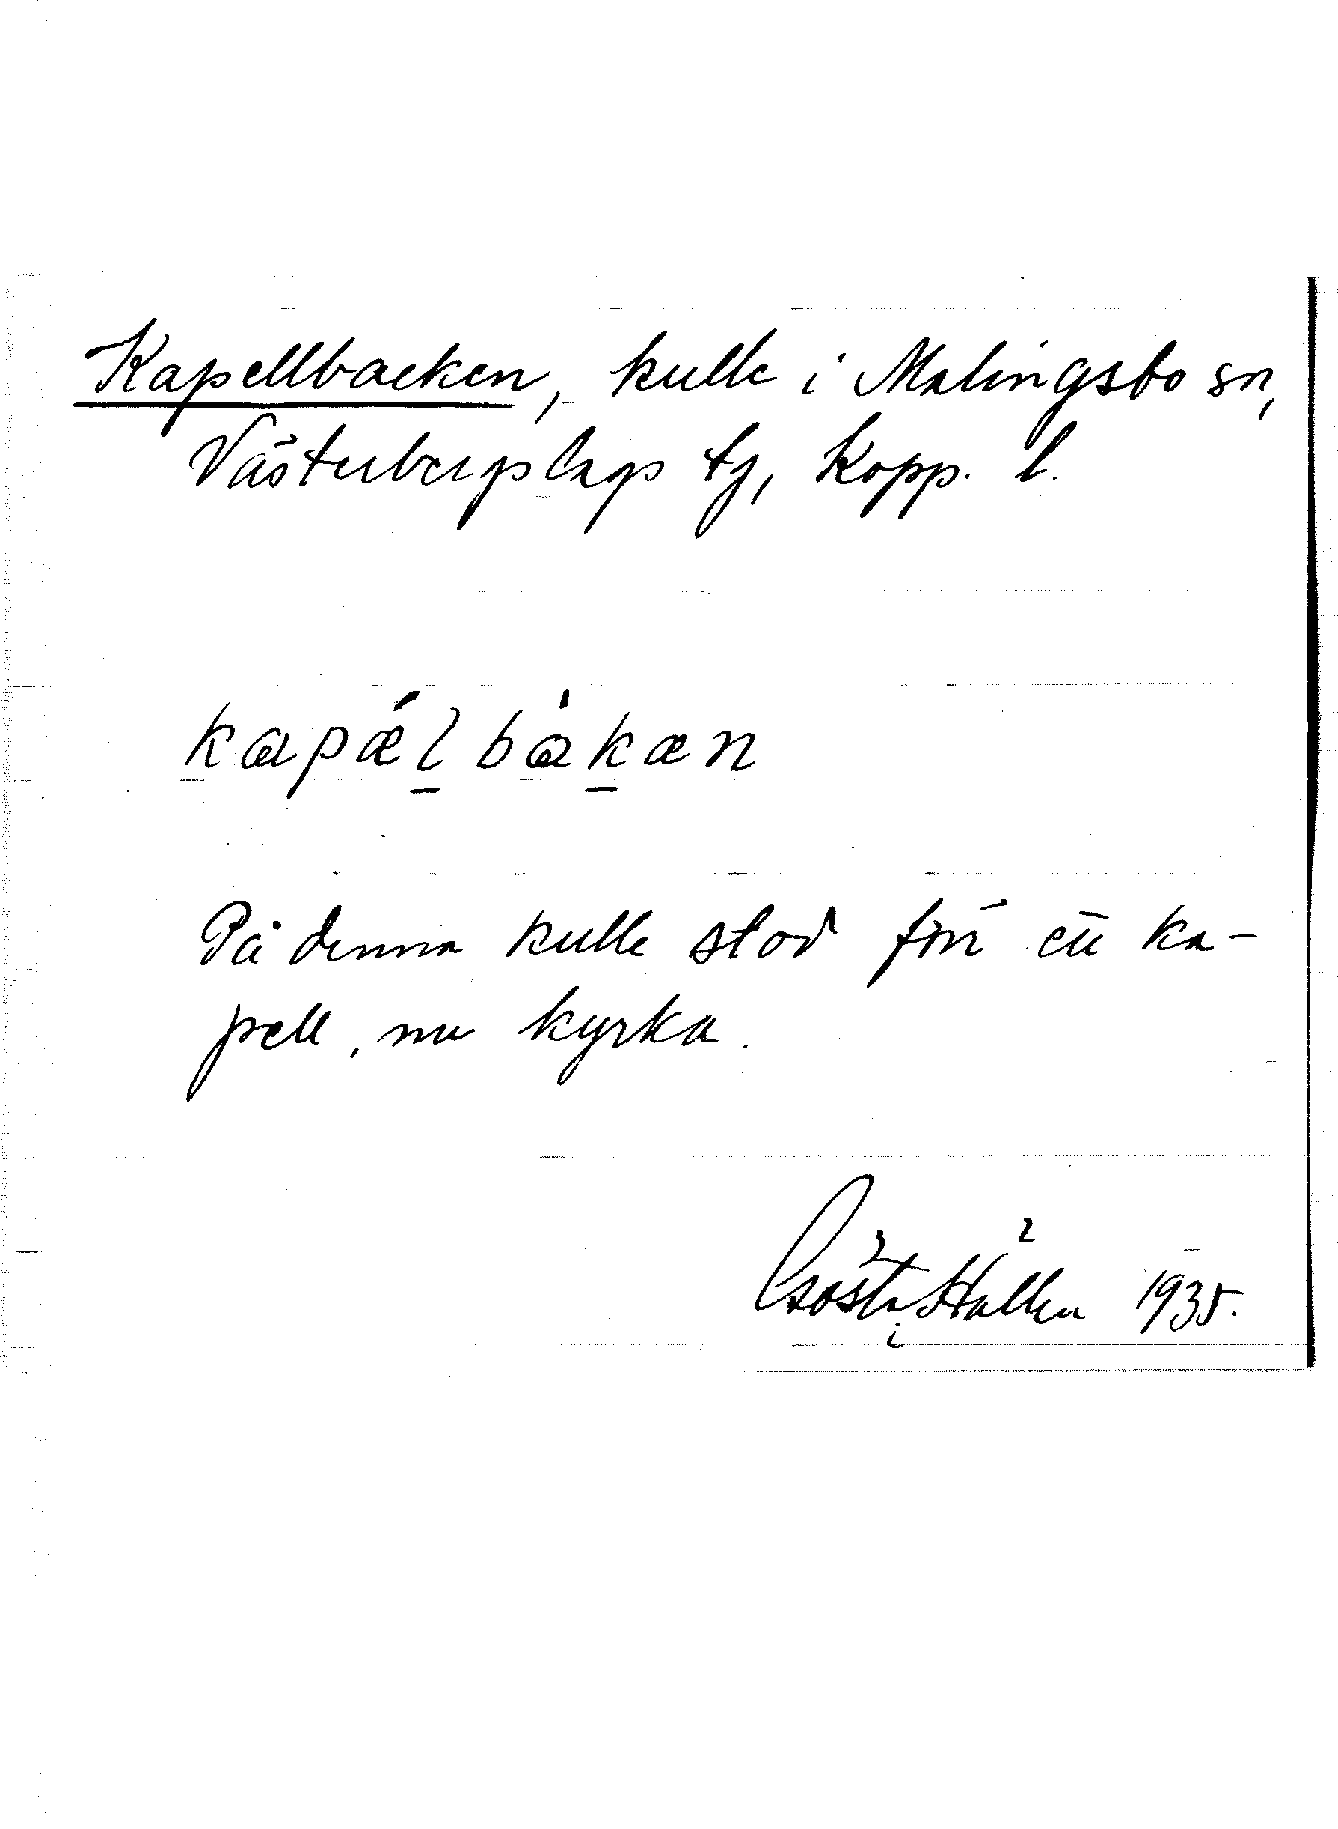 Kapellbacken, kulle i Malingsbo sn,
Västerbergslags tg, Kopp. l.
kapǽl bàkæn
På denna kulle stod förr ett ka-
pell, nu kyrka.
Gösta Hallén 1935.